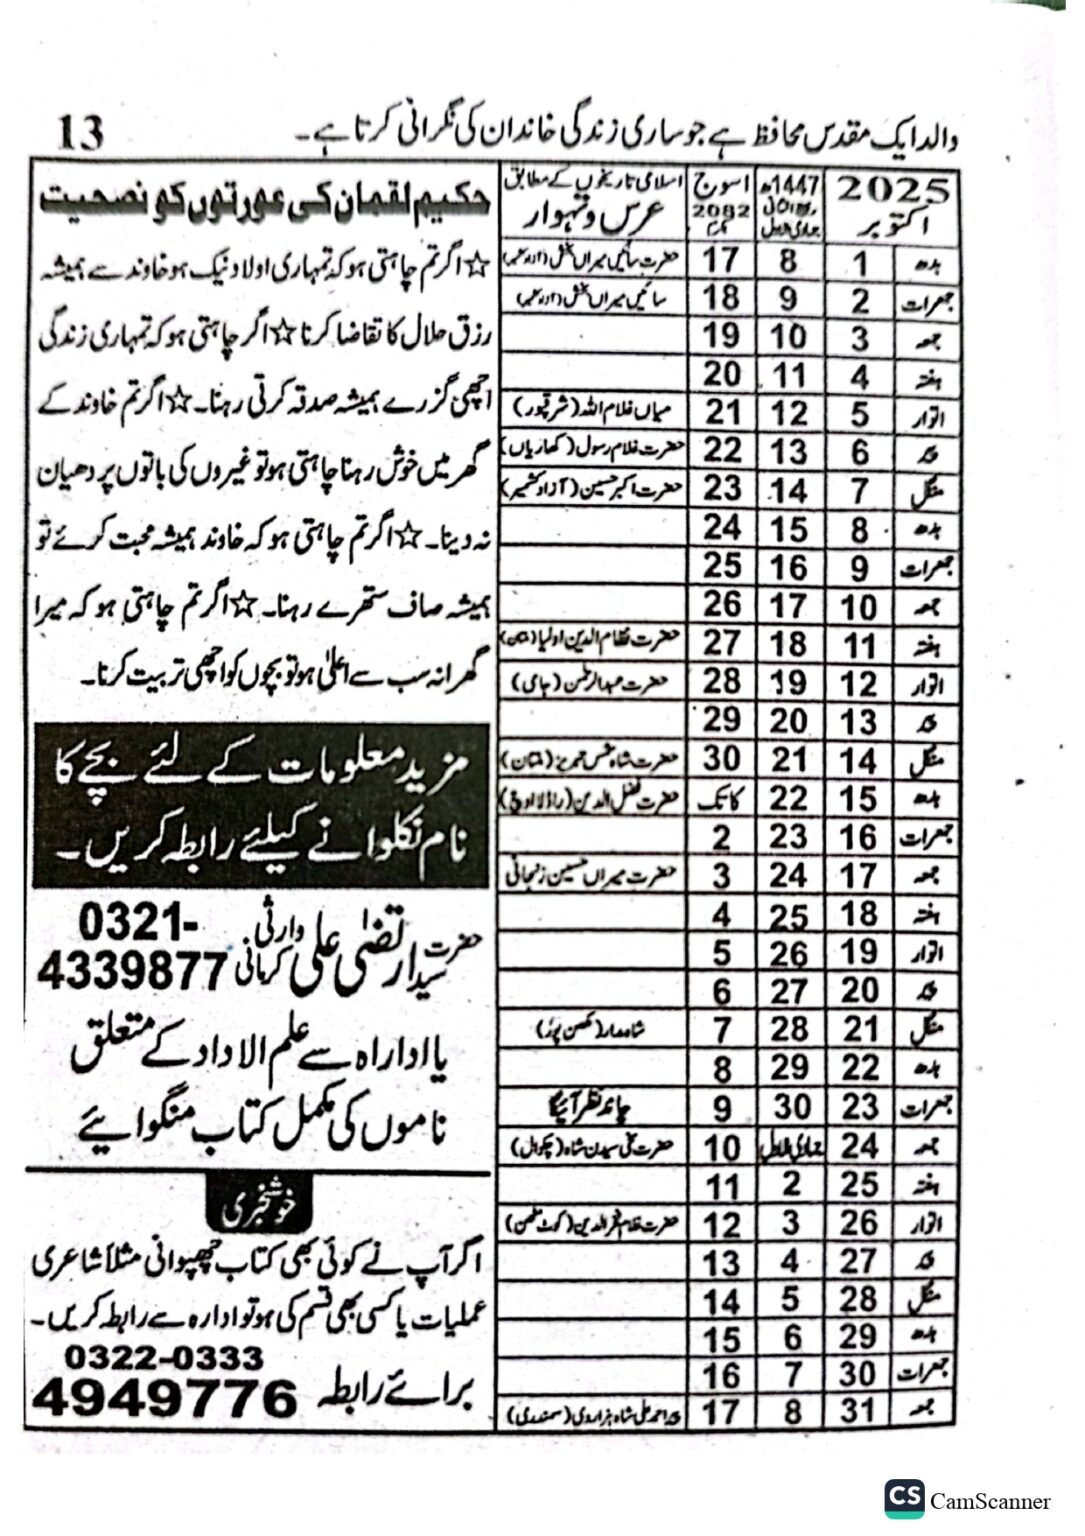 والد ایک مقدس محافظ ہے جو ساری زندگی خاندان کی نگرانی کرتا ہے۔ 13
2025 اکتوبر | 1447ھ | اسوج 2082 | اسلامی تاریخوں کے مطابق عرس و تہوار
بدھ 1 8 17 حضرت سائیں میراں بخش
جمعرات 2 9 18 سائیں میراں بخش
جمعہ 3 10 19
ہفتہ 4 11 20
اتوار 5 12 21 میاں غلام اللہ (شرقپور)
پیر 6 13 22 حضرت غلام رسول (کھاریاں)
منگل 7 14 23 حضرت اکبر حسین (آزاد کشمیر)
بدھ 8 15 24
جمعرات 9 16 25
جمعہ 10 17 26
ہفتہ 11 18 27 حضرت نظام الدین اولیا
اتوار 12 19 28 حضرت عبدالرحمن (جامی)
پیر 13 20 29
منگل 14 21 30 حضرت شاہ شمس تبریز (ملتان)
بدھ 15 22 کاتک حضرت فضل الدین
جمعرات 16 23 2
جمعہ 17 24 3 حضرت میراں حسین زنجانی
ہفتہ 18 25 4
اتوار 19 26 5
پیر 20 27 6
منگل 21 28 7 شاہ مدار
بدھ 22 29 8
جمعرات 23 30 9 چاند نظر آئیگا
جمعہ 24 جمادی الاول 10 حضرت سخی سیدن شاہ (چکوال)
ہفتہ 25 2 11
اتوار 26 3 12 حضرت غلام فخرالدین (کوٹ مٹھن)
پیر 27 4 13
منگل 28 5 14
بدھ 29 6 15
جمعرات 30 7 16
جمعہ 31 8 17 پیر احمد علی شاہ ہزاروی (سمندری)
حکیم لقمان کی عورتوں کو نصحیت
☆ اگر تم چاہتی ہو کہ تمہاری اولاد نیک ہو خاوند سے ہمیشہ
رزق حلال کا تقاضا کرنا ☆ اگر چاہتی ہو کہ تمہاری زندگی
اچھی گزرے ہمیشہ صدقہ کرتی رہنا۔ ☆ اگر تم خاوند کے
گھر میں خوش رہنا چاہتی ہو تو غیروں کی باتوں پر دھیان
نہ دینا۔ ☆ اگر تم چاہتی ہو کہ خاوند ہمیشہ محبت کرئے تو
ہمیشہ صاف ستھرے رہنا۔ ☆ اگر تم چاہتی ہو کہ میرا
گھرانہ سب سے اعلیٰ ہو تو بچوں کو اچھی تربیت کرنا۔
مزید معلومات کے لئے بچے کا
نام نکلوانے کیلئے رابطہ کریں۔
حضرت سید ارتضیٰ علی وارثی کرمانی 0321-4339877
یا ادارہ سے علم الاداد کے متعلق
ناموں کی مکمل کتاب منگوایئے
خوشخبری
اگر آپ نے کوئی بھی کتاب چھپوانی مثلاً شاعری
عملیات یا کسی بھی قسم کی ہو تو ادارہ سے رابطہ کریں۔
برائے رابطہ 0322-0333
4949776
CS CamScanner